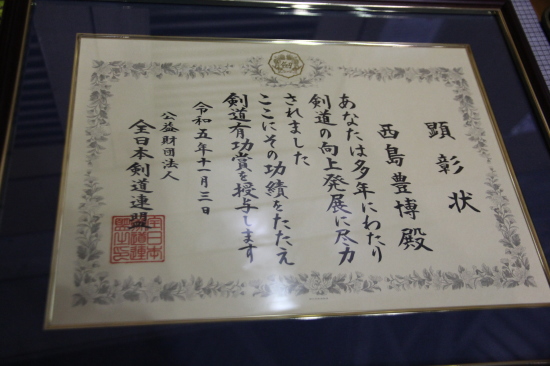 顕彰状
西島豊博殿
あなたは多年にわたり
剣道の向上発展に尽力
されました
ここにその功績をたたえ
剣道有功賞を授与します
令和五年十一月三日
公益財団法人
全日本剣道連盟